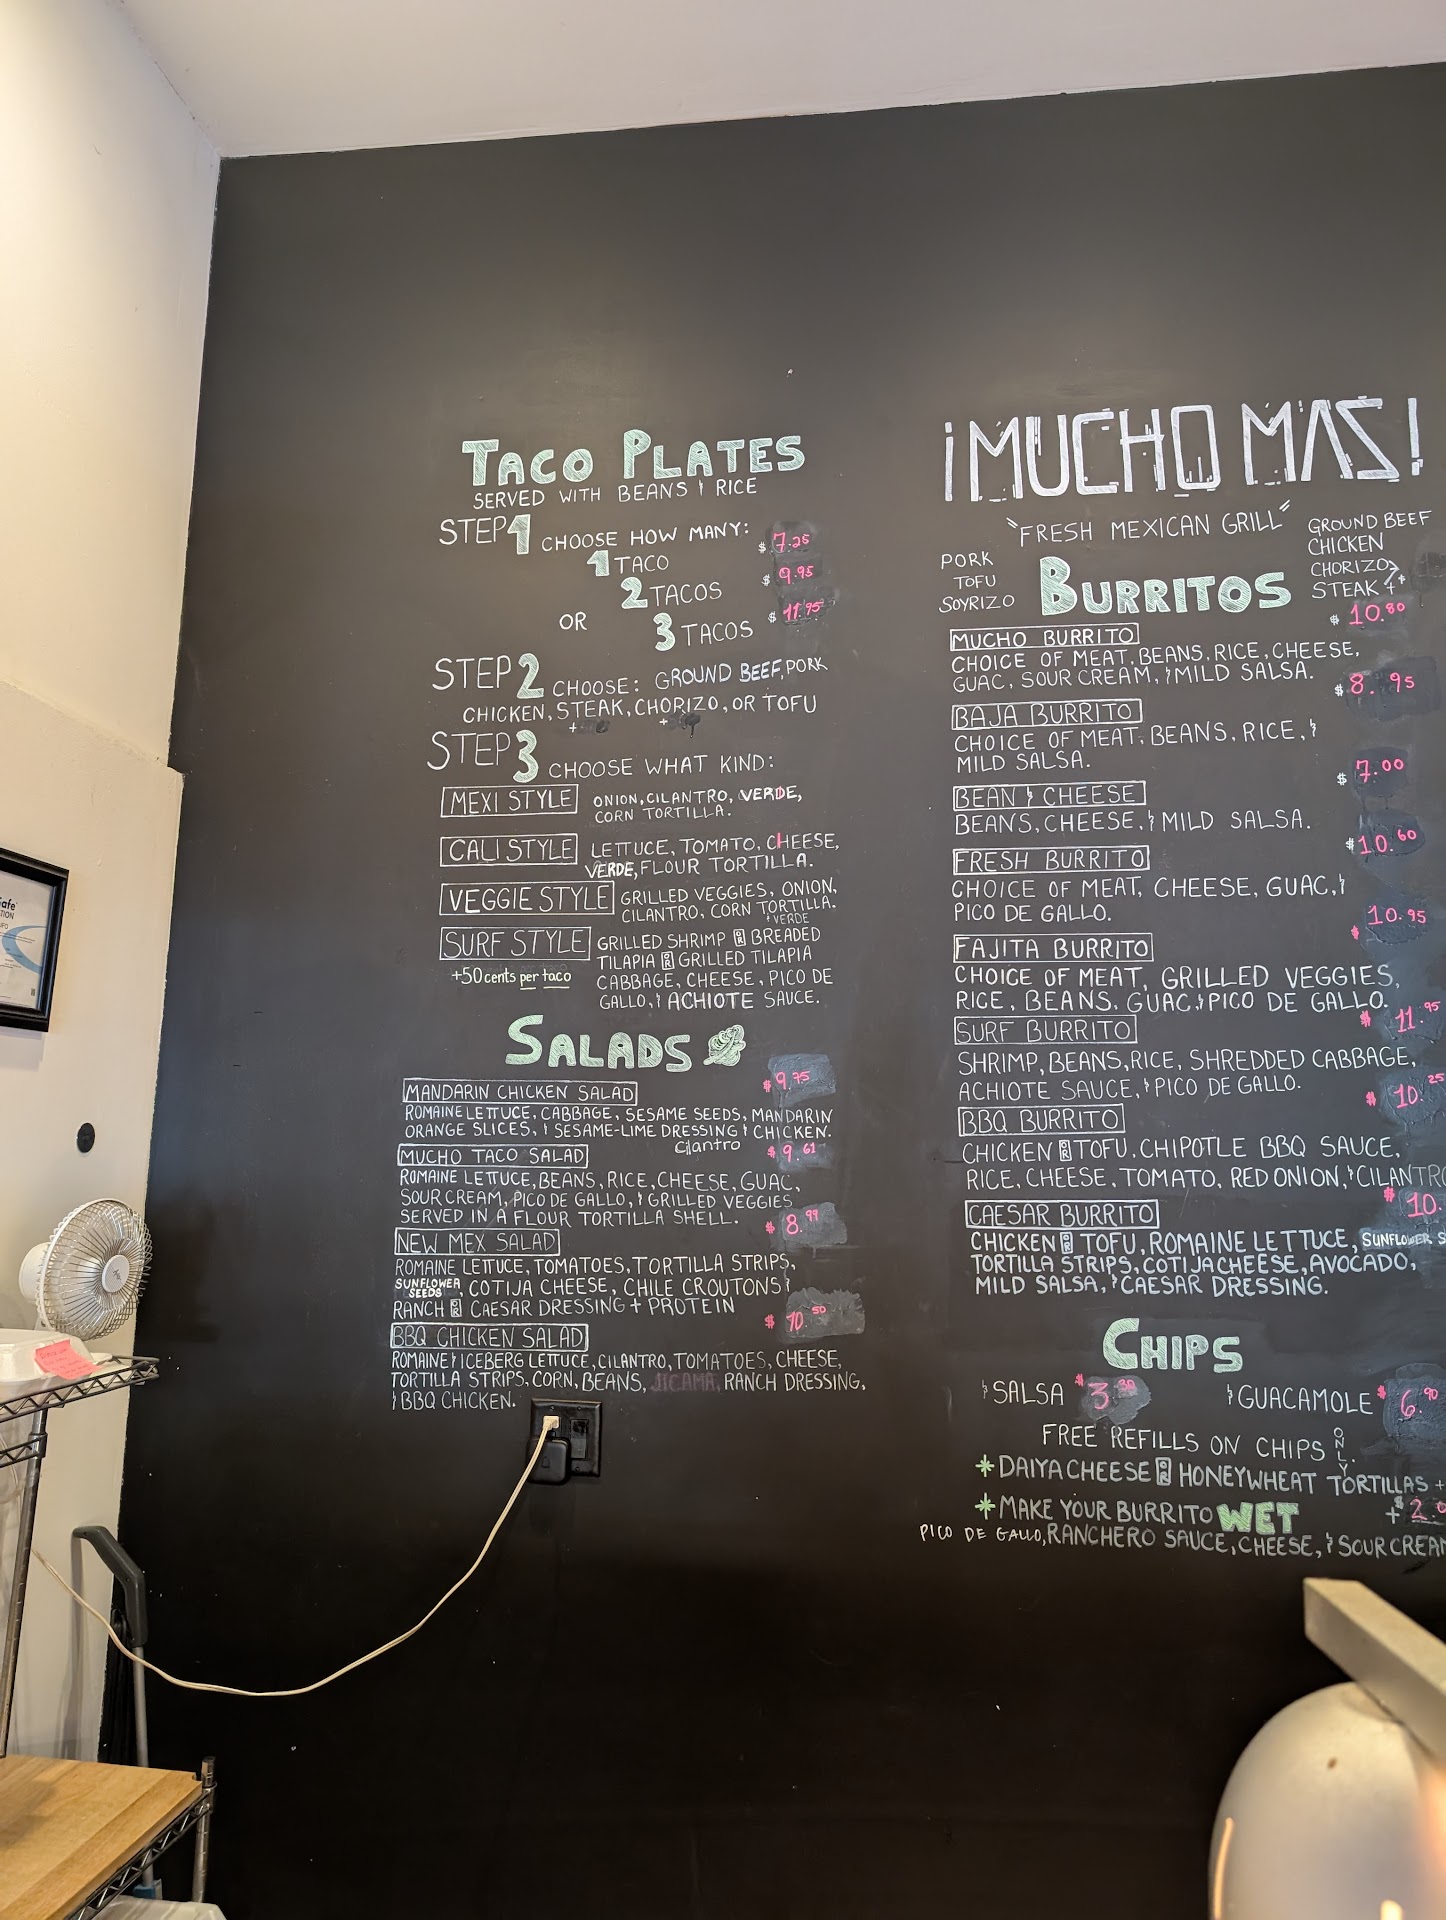 TACO PLATES
SERVED WITH BEANS & RICE
STEP 1 CHOOSE HOW MANY:
1 TACO $7.25
2 TACOS $9.95
OR 3 TACOS $11.95
STEP 2 CHOOSE: GROUND BEEF, PORK
CHICKEN, STEAK, CHORIZO, OR TOFU
+ +
STEP 3 CHOOSE WHAT KIND:
MEXI STYLE ONION, CILANTRO, VERDE,
CORN TORTILLA.
CALI STYLE LETTUCE, TOMATO, CHEESE,
VERDE, FLOUR TORTILLA.
VEGGIE STYLE GRILLED VEGGIES, ONION,
CILANTRO, CORN TORTILLA.
& VERDE
SURF STYLE GRILLED SHRIMP OR BREADED
TILAPIA OR GRILLED TILAPIA
+50 cents per taco CABBAGE, CHEESE, PICO DE
GALLO, & ACHIOTE SAUCE.
SALADS
MANDARIN CHICKEN SALAD $9.75
ROMAINE LETTUCE, CABBAGE, SESAME SEEDS, MANDARIN
ORANGE SLICES, & SESAME-LIME DRESSING & CHICKEN.
Cilantro
MUCHO TACO SALAD $9.61
ROMAINE LETTUCE, BEANS, RICE, CHEESE, GUAC,
SOUR CREAM, PICO DE GALLO, & GRILLED VEGGIES
SERVED IN A FLOUR TORTILLA SHELL.
NEW MEX SALAD $8.99
ROMAINE LETTUCE, TOMATOES, TORTILLA STRIPS,
SUNFLOWER SEEDS, COTIJA CHEESE, CHILE CROUTONS &
RANCH OR CAESAR DRESSING + PROTEIN
BBQ CHICKEN SALAD $10.50
ROMAINE & ICEBERG LETTUCE, CILANTRO, TOMATOES, CHEESE,
TORTILLA STRIPS, CORN, BEANS, JICAMA, RANCH DRESSING,
& BBQ CHICKEN.
¡MUCHO MAS!
"FRESH MEXICAN GRILL"
PORK
TOFU
SOYRIZO
BURRITOS
GROUND BEEF
CHICKEN
CHORIZO
STEAK +
MUCHO BURRITO $10.80
CHOICE OF MEAT, BEANS, RICE, CHEESE,
GUAC, SOUR CREAM, & MILD SALSA.
BAJA BURRITO $8.95
CHOICE OF MEAT, BEANS, RICE, &
MILD SALSA.
BEAN & CHEESE $7.00
BEANS, CHEESE, & MILD SALSA.
FRESH BURRITO $10.60
CHOICE OF MEAT, CHEESE, GUAC, &
PICO DE GALLO.
FAJITA BURRITO $10.95
CHOICE OF MEAT, GRILLED VEGGIES,
RICE, BEANS, GUAC, & PICO DE GALLO.
SURF BURRITO $11.95
SHRIMP, BEANS, RICE, SHREDDED CABBAGE,
ACHIOTE SAUCE, & PICO DE GALLO.
BBQ BURRITO $10.25
CHICKEN OR TOFU, CHIPOTLE BBQ SAUCE,
RICE, CHEESE, TOMATO, RED ONION, & CILANTRO
CAESAR BURRITO $10.
CHICKEN OR TOFU, ROMAINE LETTUCE, SUNFLOWER S
TORTILLA STRIPS, COTIJA CHEESE, AVOCADO,
MILD SALSA, & CAESAR DRESSING.
CHIPS
& SALSA $3.30 & GUACAMOLE $6.90
FREE REFILLS ON CHIPS ONLY.
*DAIYA CHEESE OR HONEYWHEAT TORTILLAS +
*MAKE YOUR BURRITO WET +$2.0
PICO DE GALLO, RANCHERO SAUCE, CHEESE, & SOUR CREAM